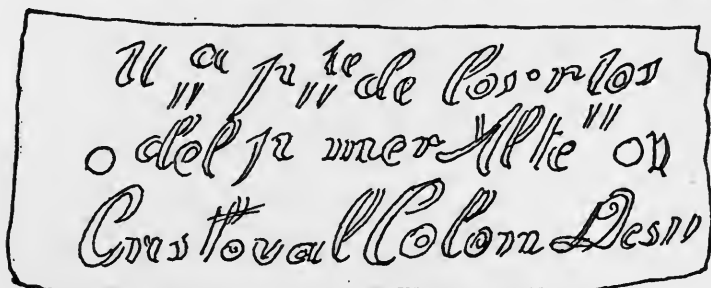 U,,ᵃ p,,ᵗᵉ de los r los
del pr imer Alte"
Cristoval Colon Des